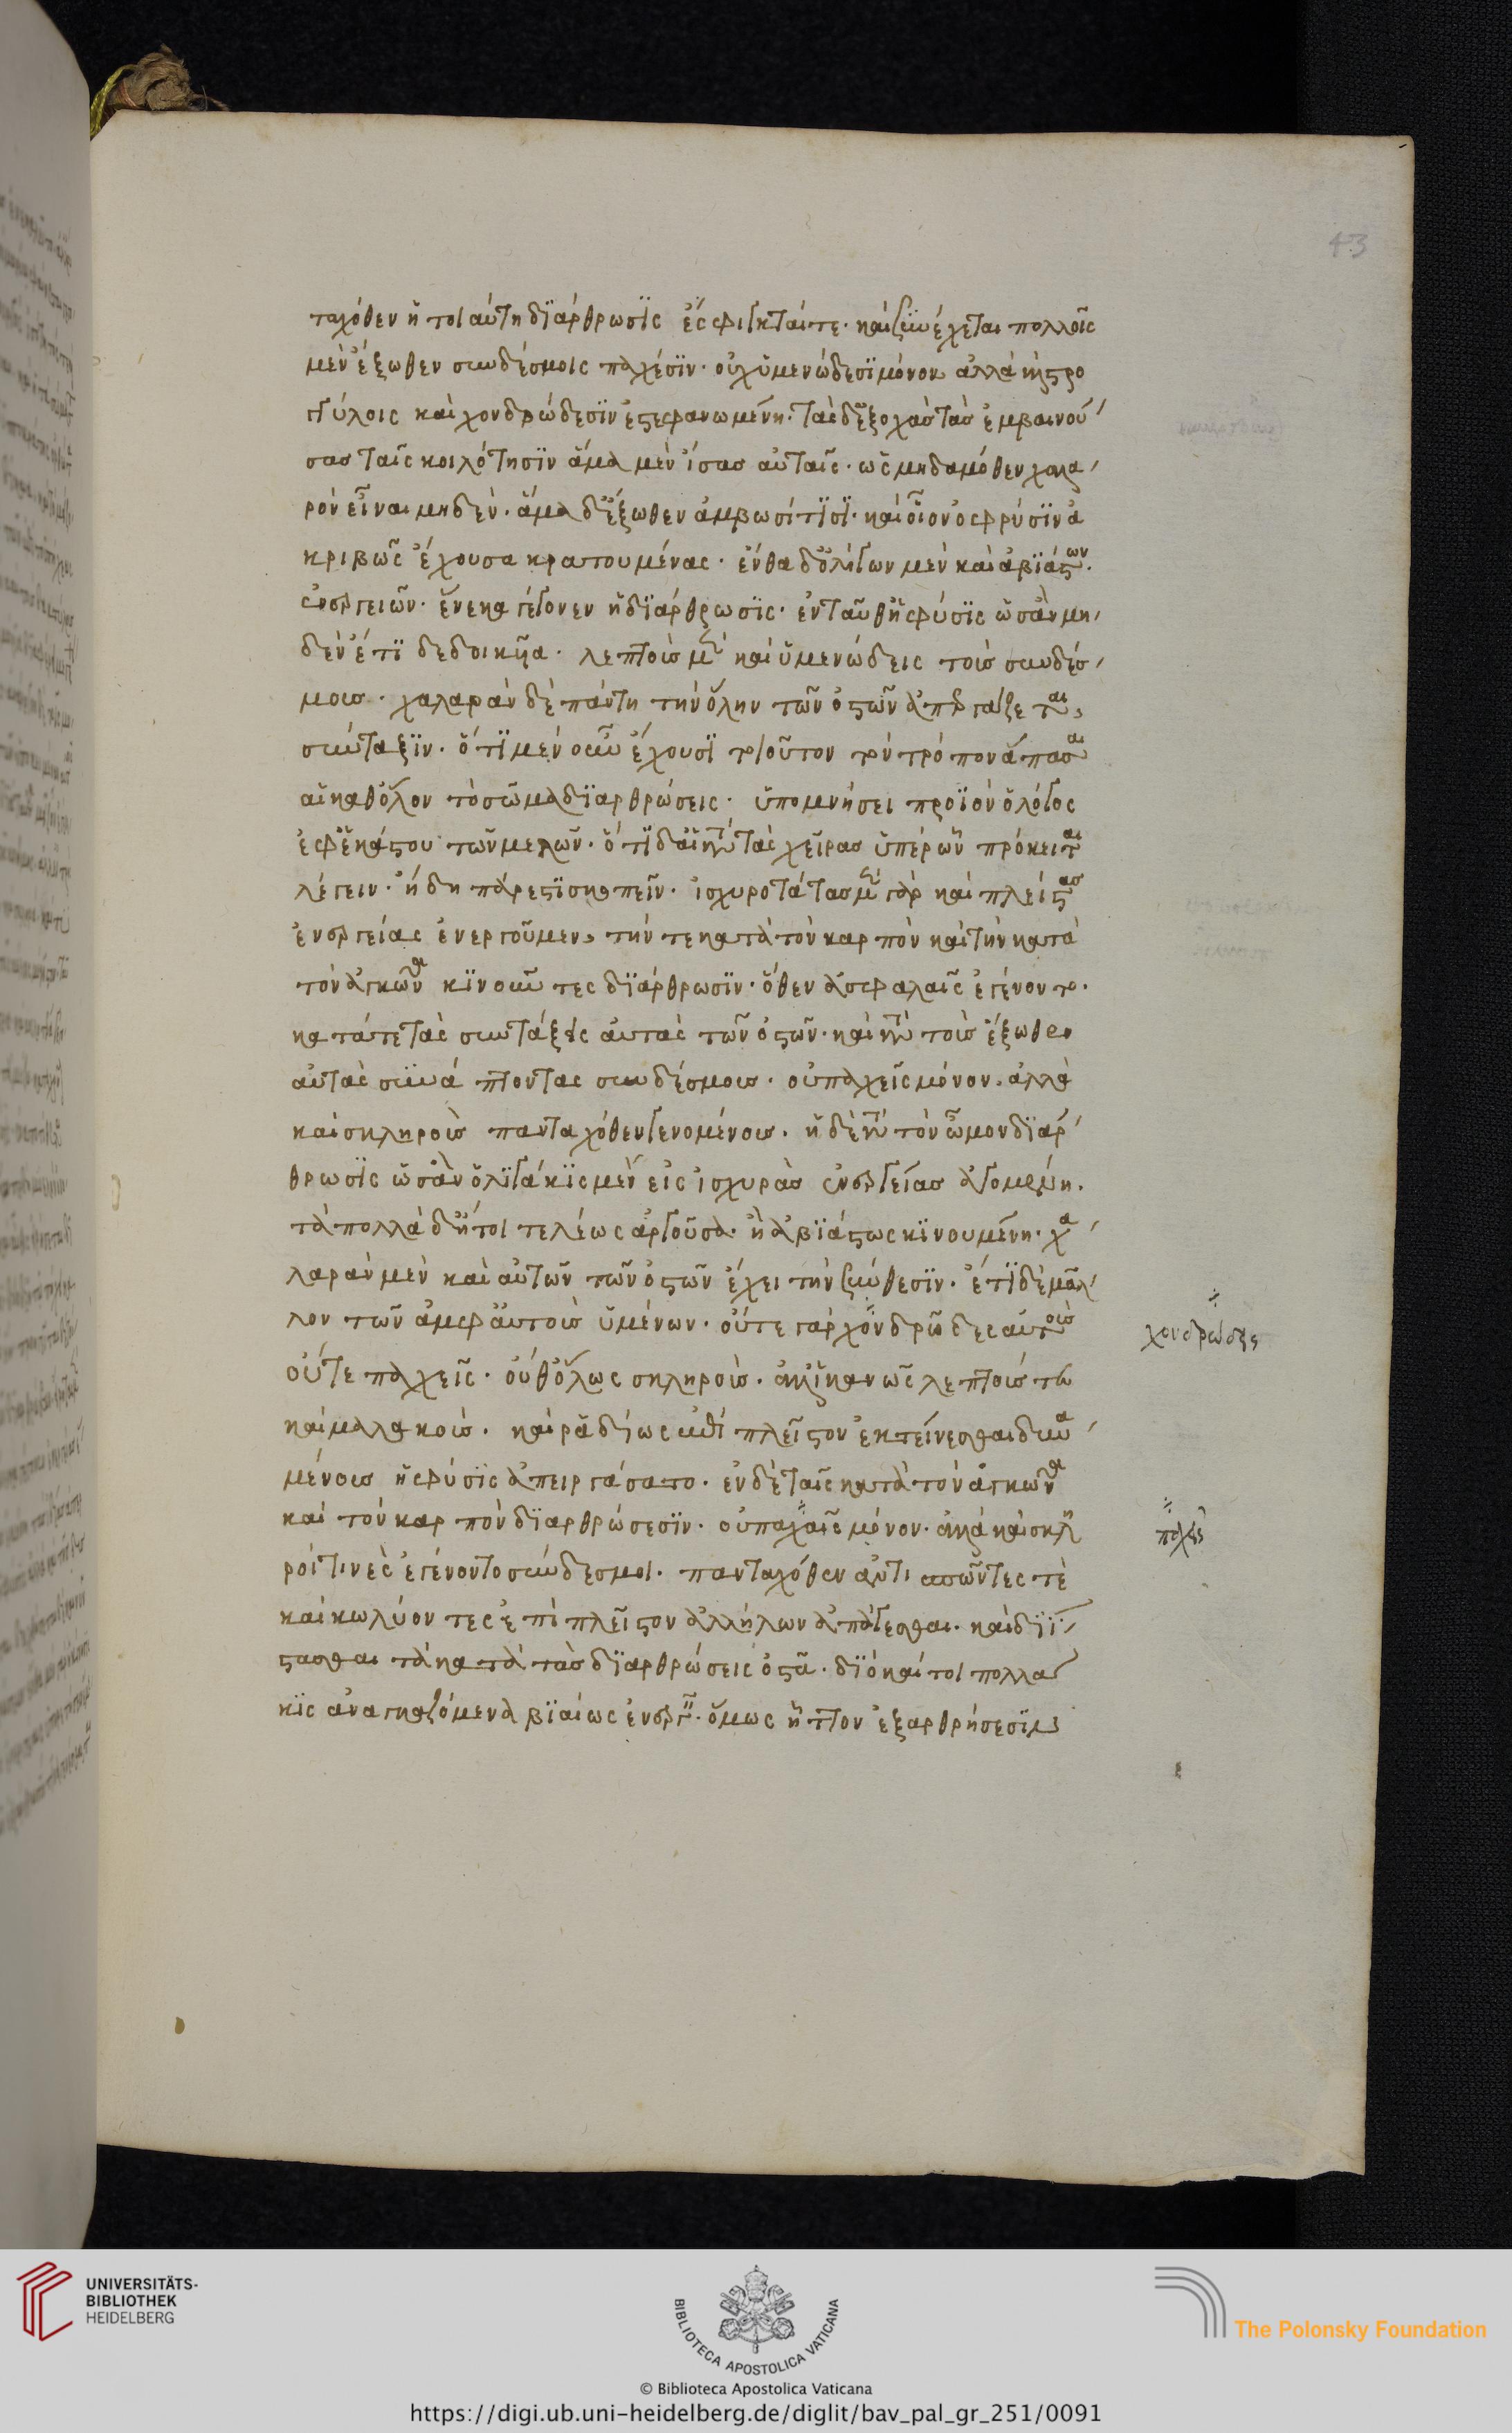 43
ταχόθεν ἡ τοιαύτη διάρθρωσις ἔσφιγκταί τε. καὶ συνέχεται πολλοῖς
μὲν ἔξωθεν συνδέσμοις παχέσιν. οὐχ ὑμενώδεσι μόνον ἀλλὰ καὶ στρο
γγύλοις καὶ χονδρώδεσιν ἐστεφανωμένη. τὰς δ' ἐξοχὰς τὰς ἐμβαινού
σας ταῖς κοιλότησιν ἅμα μὲν ἴσας αὐταῖς. ὡς μηδαμόθεν χαλα
ρὸν εἶναι μηδέν. ἅμα δ' ἔξωθεν ἄμβωσί τισι. καὶ οἷον ὀφρύσιν ἀ
κριβῶς ἔχουσα κρατουμένας. ἔνθα δ' ὀλίγων μὲν καὶ ἀβιάστων.
ἐνεργειῶν. ἕνεκα γέγονεν ἡ διάρθρωσις. ἐνταῦθ' ἡ φύσις ὡσὰν μη
δὲν ἔτι δεδοικυῖα. λεπτοὺς μὲν καὶ ὑμενώδεις τοὺς συνδέσ
μους. χαλαρὰν δὲ πάντη τὴν ὅλην τῶν ὀστῶν ἀπεργάζεται
σύνταξιν. ὅτι μὲν οὖν ἔχουσι τοιοῦτον τὸν τρόπον ἅπασαι
αἱ καθ' ὅλον τὸ σῶμα διαρθρώσεις. ὑπομνήσει προϊὸν ὁ λόγος
ἐφ' ἑκάστου τῶν μερῶν. ὅτι δ' αἱ κατὰ τὰς χεῖρας ὑπὲρ ὧν πρόκειται
λέγειν. ἤδη πάρεστι σκοπεῖν. ἰσχυροτάτας μὲν γὰρ καὶ πλείστας
ἐνεργείας ἐνεργοῦμεν, τήν τε κατὰ τὸν καρπὸν καὶ τὴν κατὰ
τὸν ἀγκῶνα κινοῦντες διάρθρωσιν. ὅθεν ἀσφαλεῖς ἐγένοντο.
κατά τε τὰς συντάξεις αὐτὰς τῶν ὀστῶν. καὶ κατὰ τοὺς ἔξωθεν
αὐτὰς συνάπτοντας συνδέσμους. οὐ παχεῖς μόνον. ἀλλὰ
καὶ σκληροὺς πανταχόθεν γενομένους. ἡ δὲ κατὰ τὸν ὦμον διάρ
θρωσις ὡσὰν ὀλιγάκις μὲν εἰς ἰσχυρὰς ἐνεργείας ἀγομένη.
τὰ πολλὰ δ' ἤτοι τελέως ἀργοῦσα. ἢ ἀβιάστως κινουμένη. χα
λαρὰν μὲν καὶ αὐτῶν τῶν ὀστῶν ἔχει τὴν σύνθεσιν. ἔτι δὲ μᾶλ
λον τῶν ἀμφ' αὐτοὺς ὑμένων. οὔτε γὰρ χονδρώδεις αὐτοὺς
οὔτε παχεῖς. οὔθ' ὅλως σκληροὺς. ἀλλ' ἱκανῶς λεπτούς τε
καὶ μαλακοὺς. καὶ ῥᾳδίως ἐπὶ πλεῖστον ἐκτείνεσθαι δυνα
μένους ἡ φύσις ἀπειργάσατο. ἐν δὲ ταῖς κατὰ τὸν ἀγκῶνα
καὶ τὸν καρπὸν διαρθρώσεσιν. οὐ παχεῖς μόνον. ἀλλὰ καὶ σκλη
ροί τινες ἐγένοντο σύνδεσμοι. πανταχόθεν ἀντισπῶντές τε
καὶ κωλύοντες ἐπὶ πλεῖστον ἀλλήλων ἀπάγεσθαι. καὶ διΐ
στασθαι τὰ κατὰ τὰς διαρθρώσεις ὀστᾶ. διὸ καί τοι πολλά
κις ἀναγκαζόμενα βιαίως ἐνεργεῖν. ὅμως ἧττον ἐξαρθρήσεσιν
χονδρώδεις
παχεῖς
UNIVERSITÄTS-
BIBLIOTHEK
HEIDELBERG
BIBLIOTECA APOSTOLICA VATICANA
The Polonsky Foundation
© Biblioteca Apostolica Vaticana
https://digi.ub.uni-heidelberg.de/diglit/bav_pal_gr_251/0091